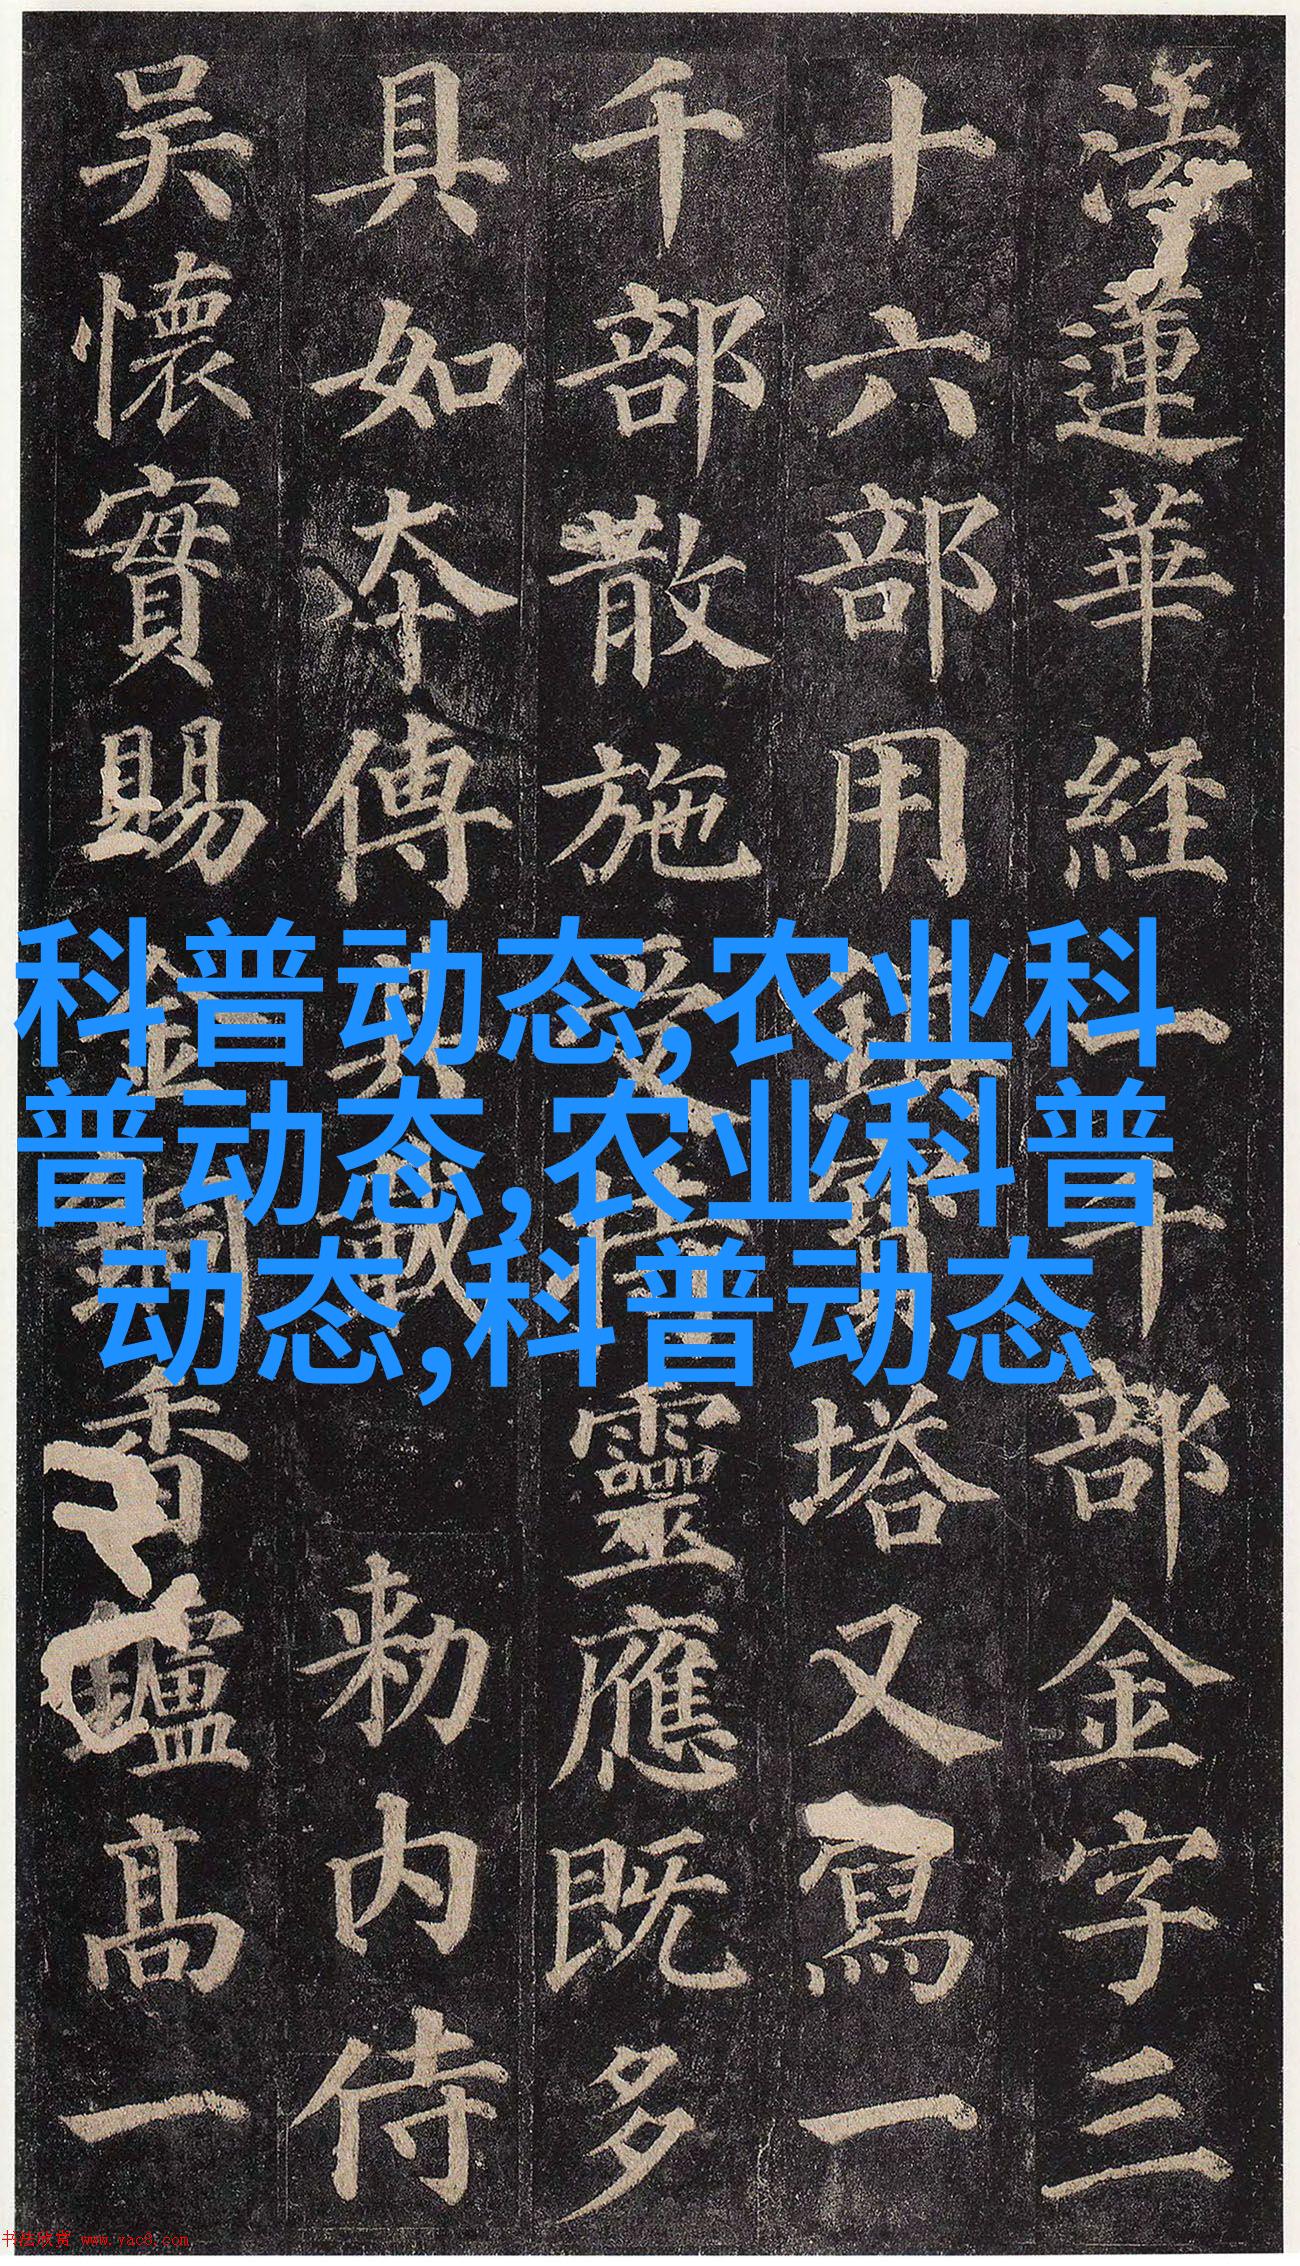 法蓮華経一千部金字三
十六部用鎮寳塔又寫一
千部散施受持靈應既多
具如夲傳其載勑内侍
吴懷實賜金銅香爐高一
科普动态,农业科
普动态,农业科普
动态,科普动态
书法欣赏 www.yac8.com